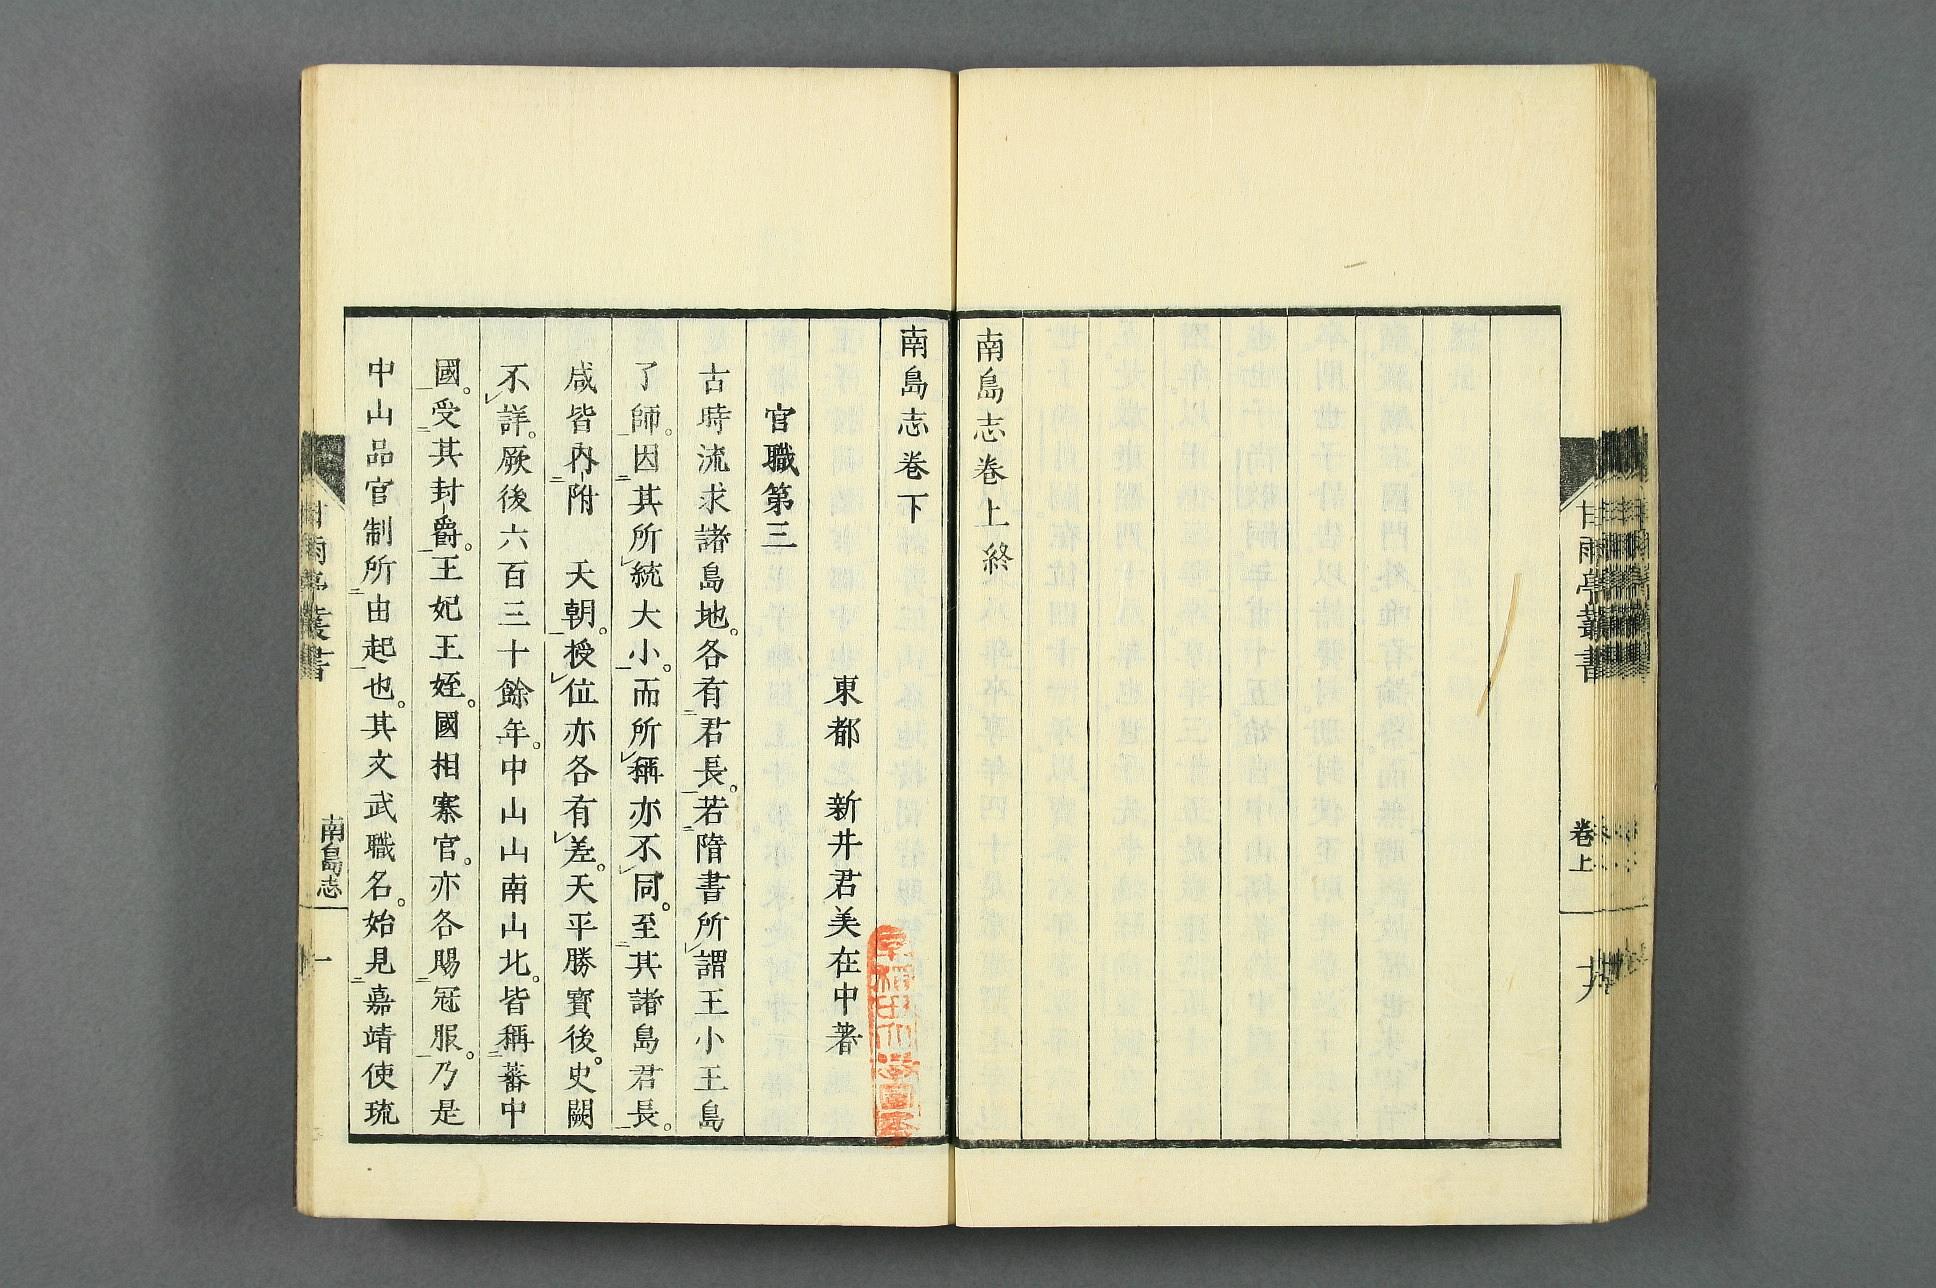 甘雨亭叢書
卷上
南島志卷上終
南島志卷下
東都　新井君美在中著
官職第三
古時流求諸島地。各有二君長一。若二隋書所レ謂王小王島
了師一。因二其所レ統大小一。而所レ稱亦不レ同。至二其諸島君長一。
咸皆內二-附　天朝一。授レ位亦各有レ差。天平勝寶後。史闕
不レ詳。厥後六百三十餘年。中山山南山北。皆稱二蕃中
國一。受二其封-爵一。王妃王姪。國相寨官。亦各賜二冠服一。乃是
中山品官制所二由起一也。其文武職名。始見二嘉靖使琉
甘雨亭叢書
南島志
一